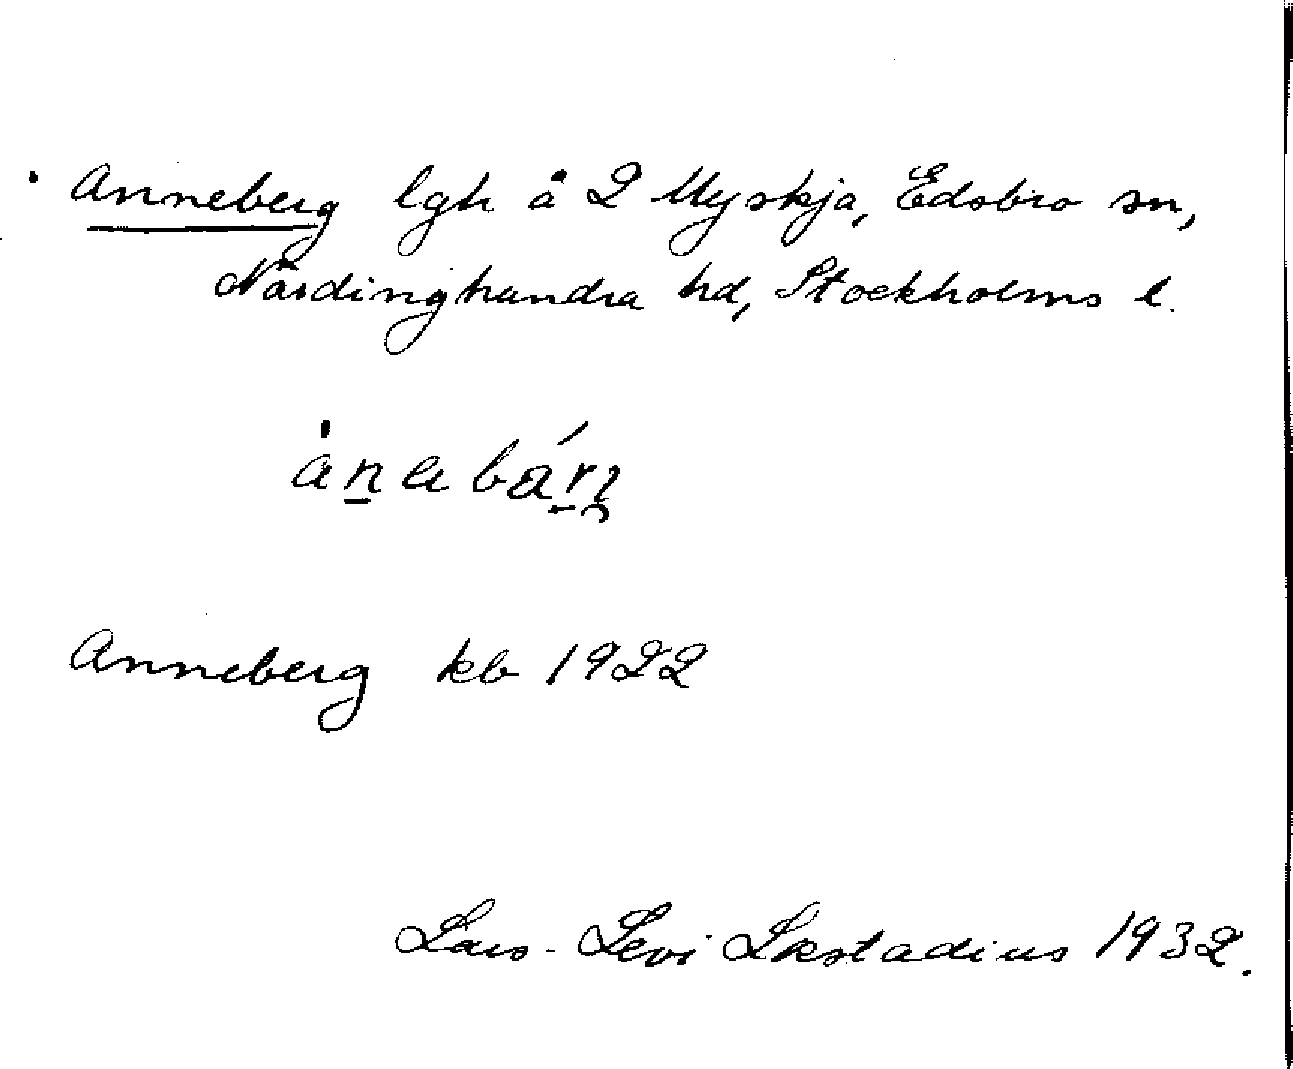 Anneberg lgh å 2 Myskja, Edsbro sn,
Närdinghundra hd, Stockholms l.
Anneberg kb 1922
Lars-Levi Læstadius 1932.